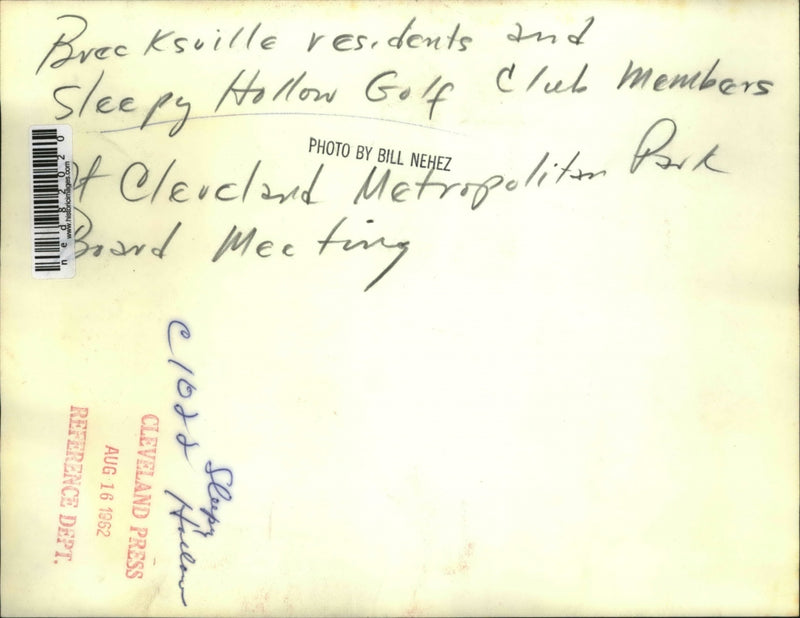 Brecksville residents and
Sleepy Hollow Golf Club Members
PHOTO BY BILL NEHEZ
At Cleveland Metropolitan Park
Board Meeting
www.historicimages.com
ned82020
C1022
Sleepy Hollow
CLEVELAND PRESS
AUG 16 1962
REFERENCE DEPT.